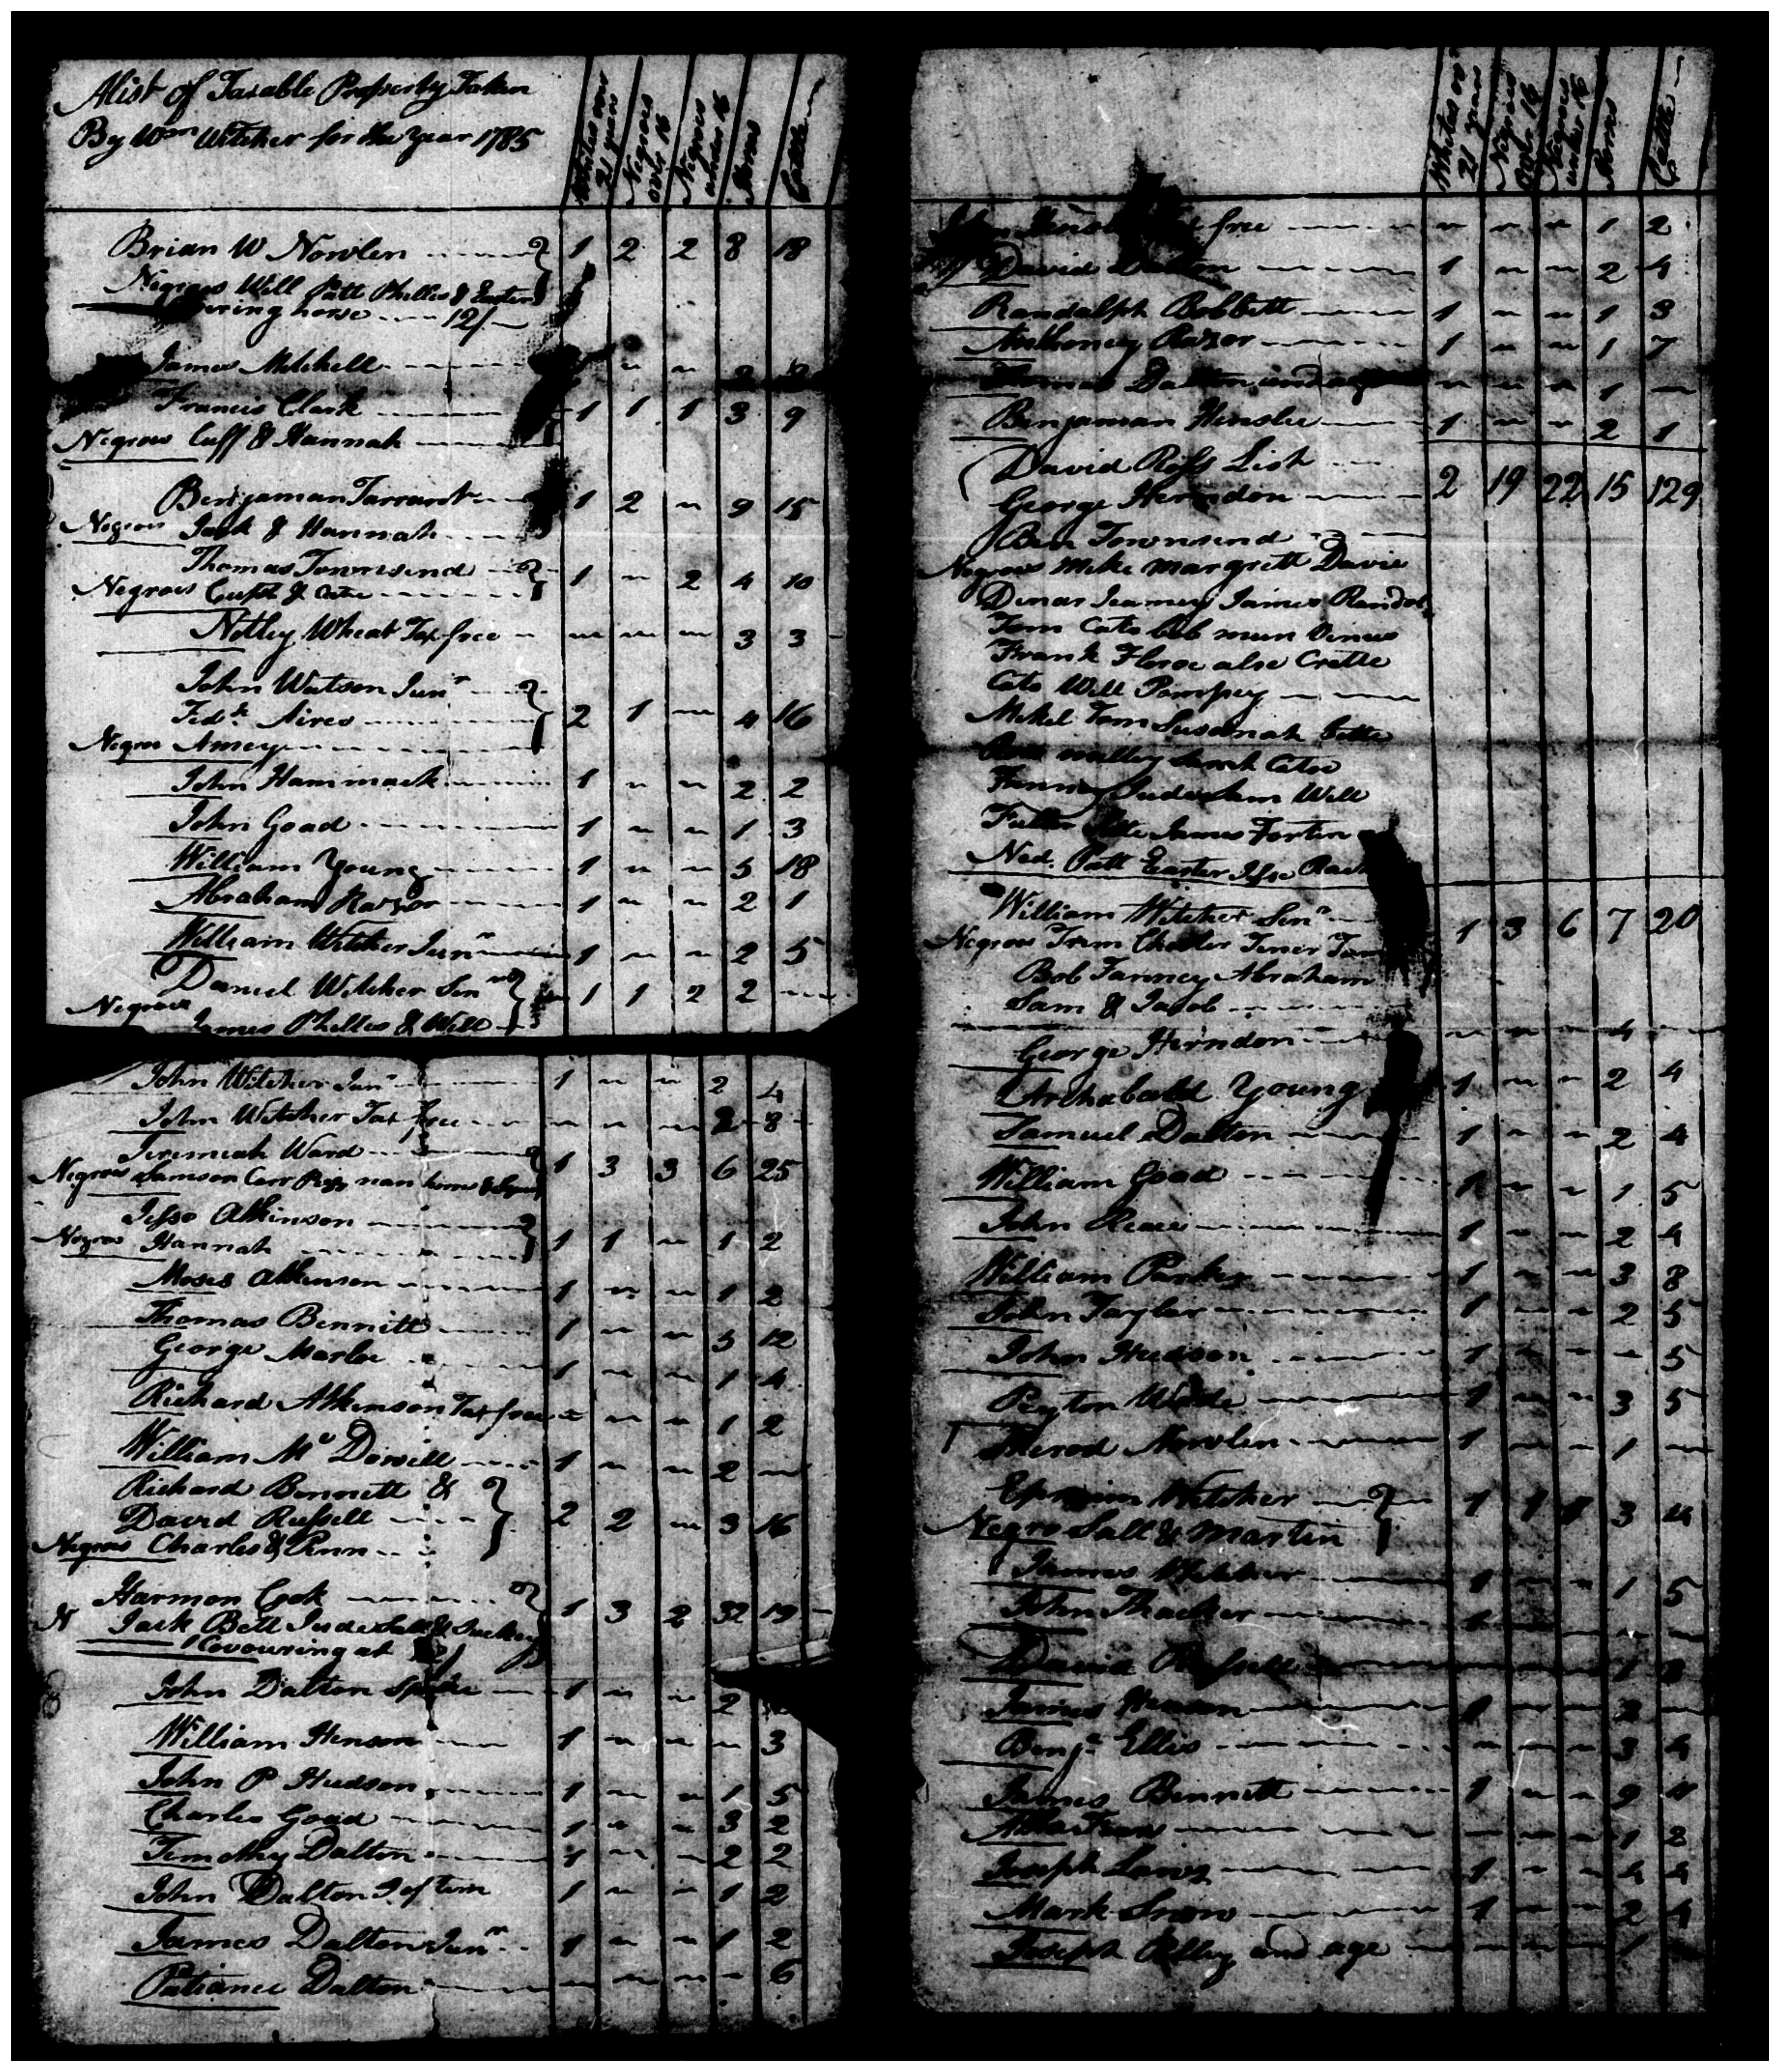 Alist of Taxable Property Taken
By Wm Witcher for the year 1785
Whites over 21 years
Negroes over 16
Negroes under 16
Horses
Cattle
Brian W Nowlen 1 2 2 8 18
Negroes Will Patt Phillis & Easter
horse 12/
James Mitchell
Francis Clark 1 1 1 3 9
Negroes Cuff & Hannah
Benjaman Tarrant 1 2 9 15
Negroes Jack & Hannah
Thomas Townsend 1 2 4 10
Negroes & Cate
Notley Wheat Tax free 3 3
John Watson Junr
Aires 2 1 4 16
Negroe Amey
John Hammack 1 2 2
John Goad 1 1 3
William Young 1 5 18
Abraham Razor 1 2 1
William Witcher Junr 1 2 5
Daniel Witcher Senr 1 1 2 2
Negroes
James Phillis & Will
John Witcher Junr 1 2 4
John Witcher Tax free 2 8
Jeremiah Ward 1 3 3 6 25
Negroes Samson Carr nan
Jesse Atkinson 1 1 1 2
Negroe Hannah
Moses Atkinson 1 1 2
Thomas Bennitt 1 5 12
George Marloe 1 1 4
Richard Atkinson Tax free 1 2
William Mc Dowell 1 2
Richard Bennett &
David Russell 2 2 3 16
Negroes Charles & Penn
Harmon Cook 1 3 2 32 19
N Jack Bett Jude Sall & Suckey
Covouring at
John Dalton 1 2
William Henson 1 3
John P Hudson 1 1 5
Charles Goad 1 3 2
Timothy Dalton 1 2 2
John Dalton S. of Tim 1 1 2
James Dalton Junr 1 1 2
Patiance Dalton 6
Whites over 21 years
Negroes over 16
Negroes under 16
Horses
Cattle
free 1 2
David Dalton 1 2 4
Randalph Bobbett 1 1 3
Anthoney Razor 1 1 7
Thomas Dalton und age 1
Benjaman Hinslee 1 2 1
David Ross List
George Herndon 2 19 22 15 129
Ben Townsend
Negroes Mike Margrett Davie
Dinar Jeamey James Randol
Tom Cate bob Venus
Frank alse
Cate Will Pompey
Mikel Tom Susanah
Sarah Cate
Fanney Jude Sam Will
James
Ned Patt Easter Jesse
William Witcher Senr 1 3 6 7 20
Negroes Trim
Bob Fanney Abraham
Sam & Jacob
George Herndon 4
Archabald Young 1 2 4
Samuel Dalton 1 2 4
William Goad 1 1 5
John 1 2 4
William Parker 1 3 8
John Taylor 1 2 5
John Hudson 1 5
Peyton Wade 1 3 5
Sherod Nowlin 1 1
Ephraim Witcher 1 1 1 3
Negroe Sall & Martin
James Witcher 1 1 5
John Thacker 1
David Russell 1
James 1 2
Benja Ellis 3 4
James Bennett 1 9
1 2
Joseph Laws 1 4 4
Mark Snow 1 2 4
Joseph und age 1